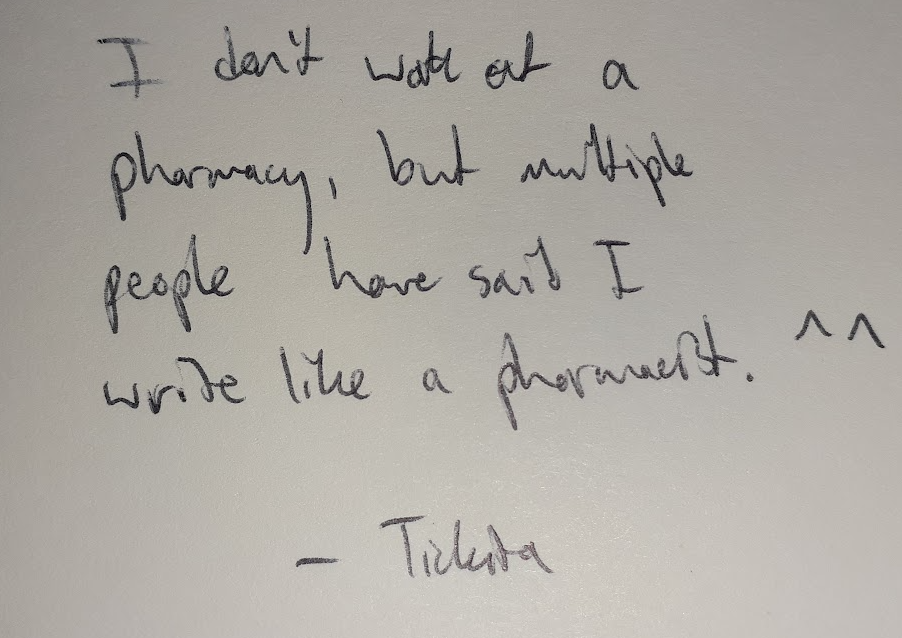 I don't work at a
pharmacy, but multiple
people have said I
write like a pharmacist. ^^
-